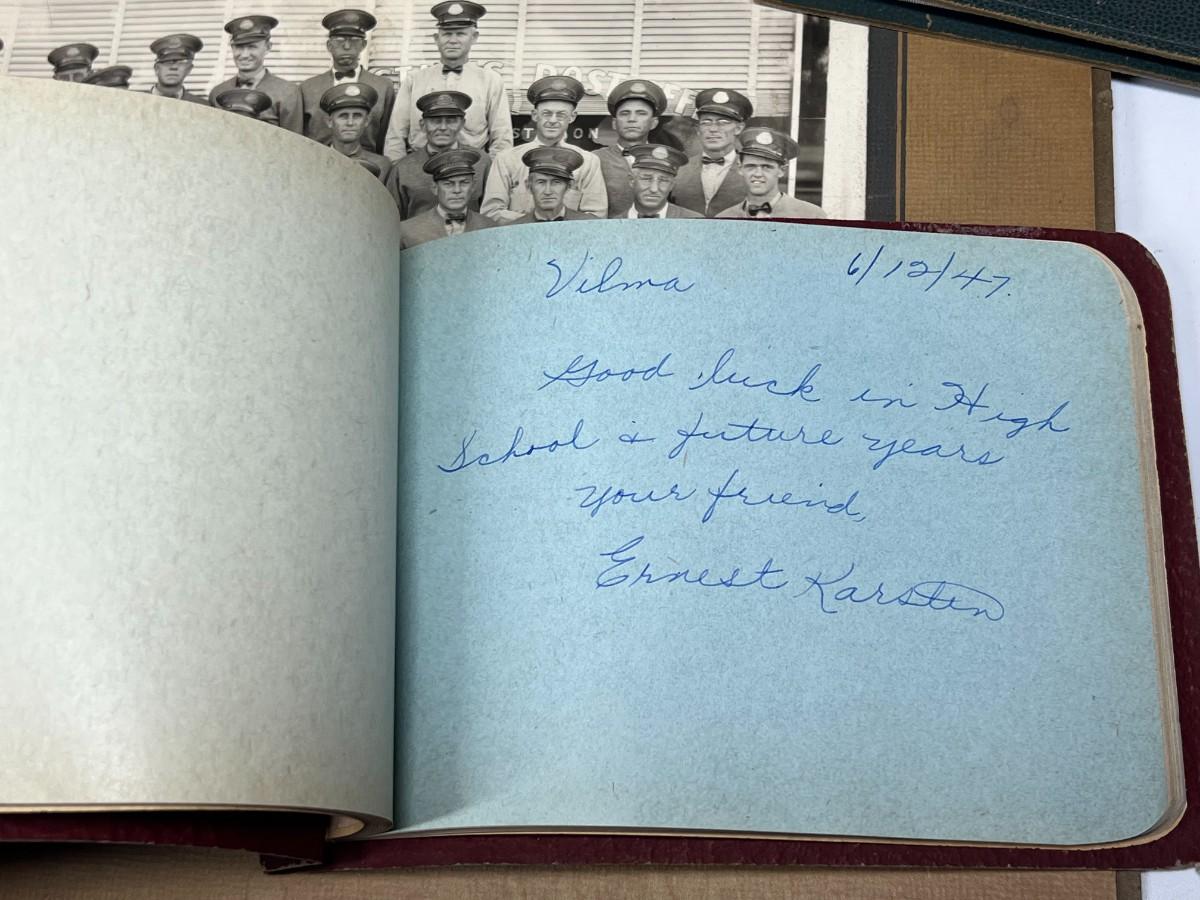 POST OFF
ST ON
Vilma 6/12/47.
Good luck in High
School & future years
your friend,
Ernest Karsten